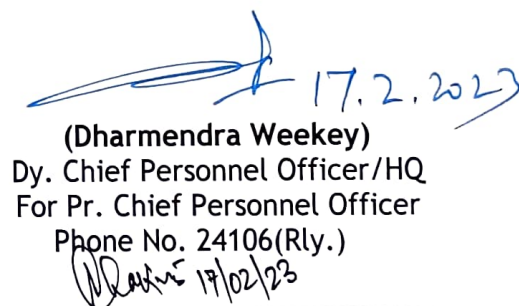 17.2.2023
(Dharmendra Weekey)
Dy. Chief Personnel Officer/HQ
For Pr. Chief Personnel Officer
Phone No. 24106(Rly.)
17/02/23